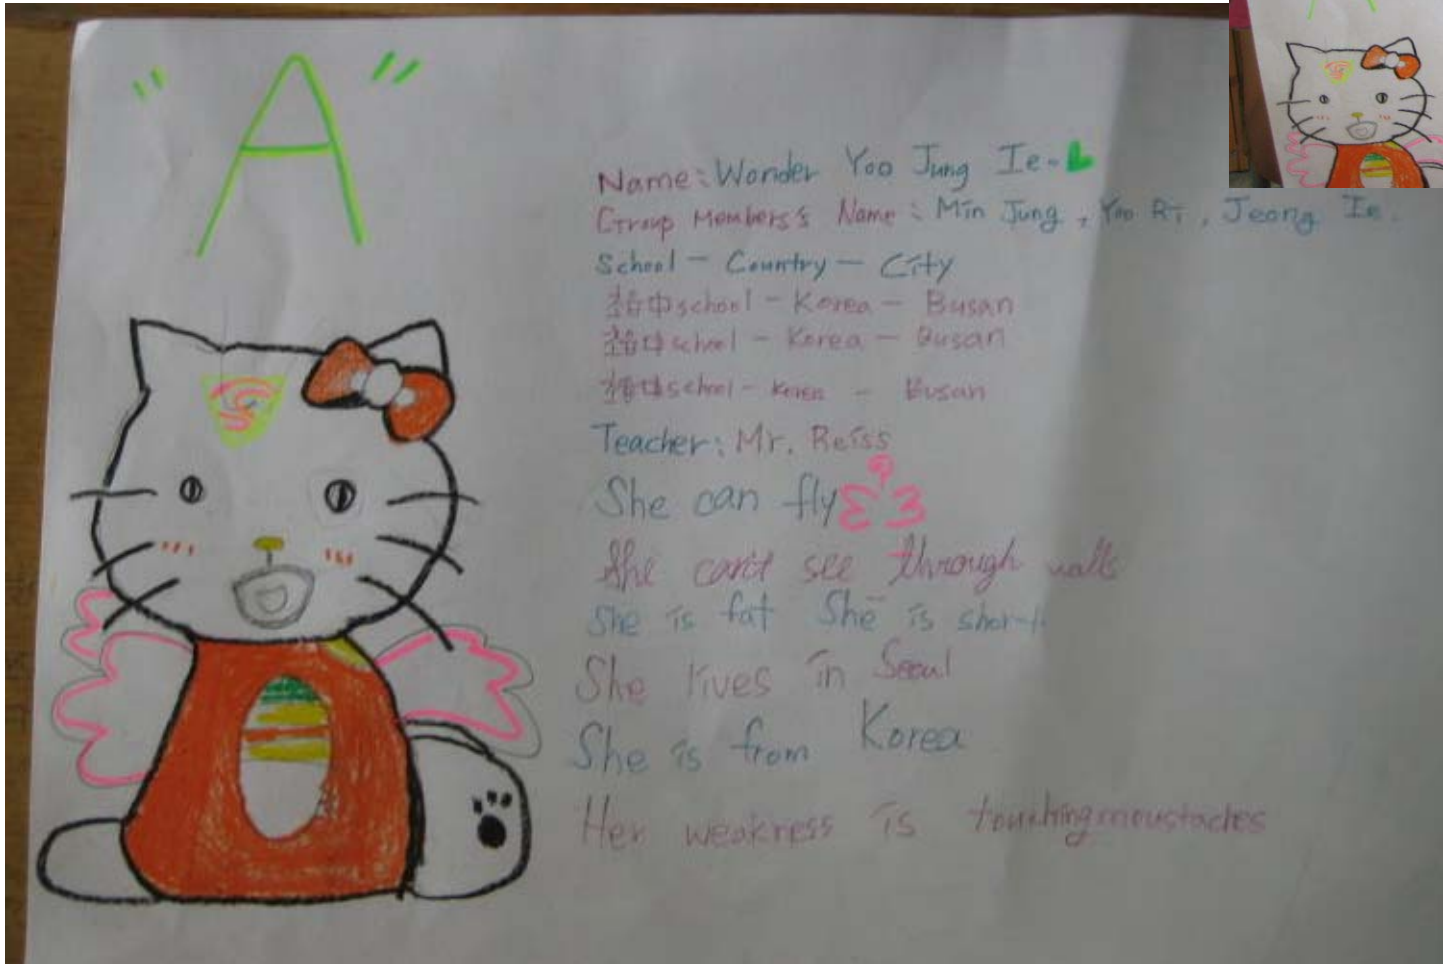 "A"
Name: Wonder Yoo Jung Ie-
Group Members's Name: Min Jung, Yoo Ri, Jeong Ie.
School - Country - City
school - Korea - Busan
school - Korea - Busan
school - Korea - Busan
Teacher: Mr. Reiss
She can fly
She can't see through walls
She is fat She is short
She lives in Seoul
She is from Korea
Her weakness is touching moustaches